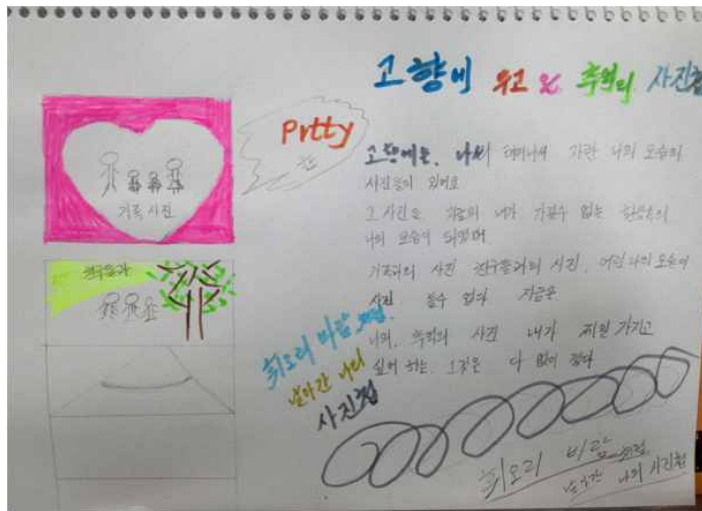 고향에 두고 온 추억의 사진첩
Prtty
가족 사진
친구들과
고향에는, 나의 태어나서 자란 나의 모습의
사진들이 있어요
그 사진은 지금의 내가 가질수 없는 한음속의
나의 모습이 되었어
가족과의 사진 친구들과의 사진, 어린 나의 모습이
사진 볼수 없다 지금은
나의, 추억의 사진 내가 제일 가지고
싶어 하는 그것은 다 없어 졌다
회오리 바람 처럼
날아간 나의
사진첩
회오리 바람 처럼
날아간 나의 사진첩